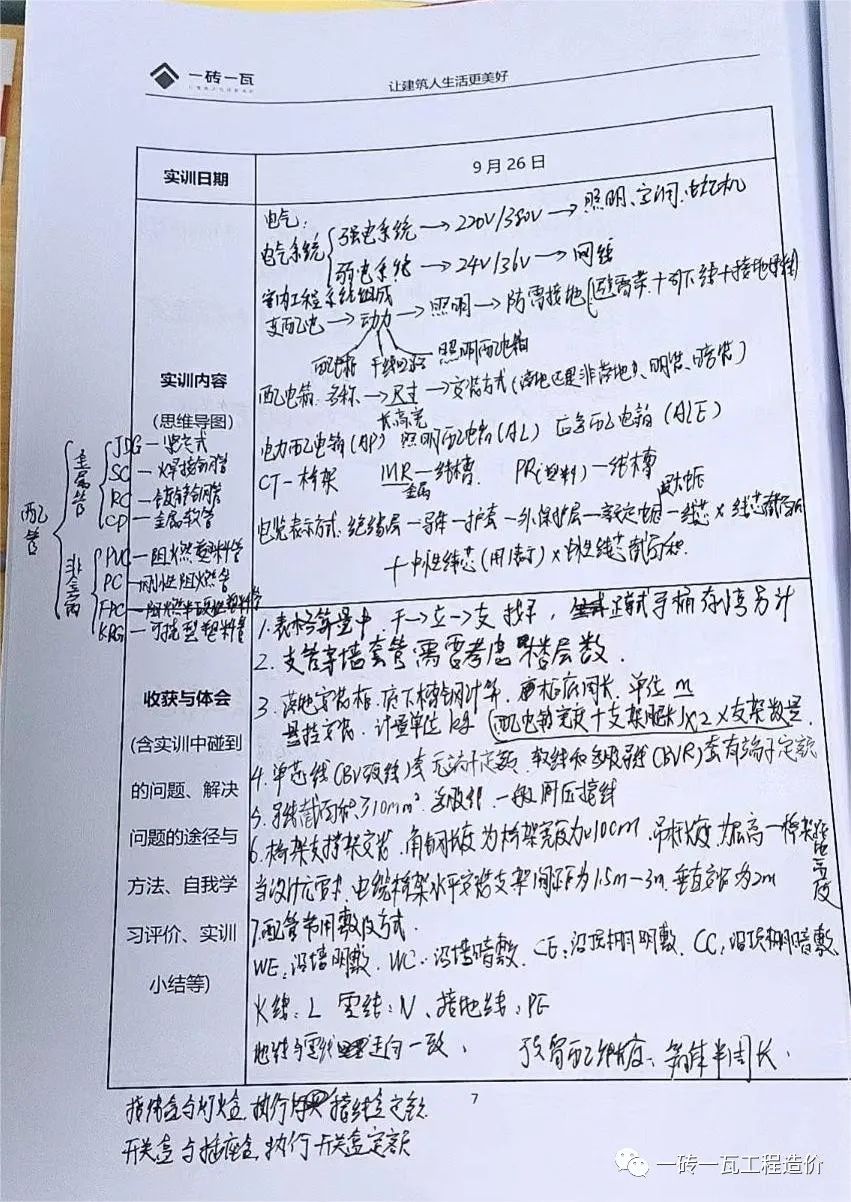 一砖一瓦
让建筑人生活更美好
实训日期
9月26日
电气:
电气系统 强电系统→220V/380V→照明、空调、
弱电系统→24V/36V→网线
室内工程系统组成
变配电→动力→照明→防雷接地(避雷带+引下线+接地
配电箱 干线 照明配电箱
实训内容
(思维导图)
配电箱 名称→尺寸→安装方式(落地还是非落地、明装、暗装)
长高宽
电力配电箱(AP) 照明配电箱(AL) 应急配电箱(ALE)
CT-桥架 MR-线槽 PR(塑料)-线槽
金属
电缆表示方式:绝缘层-导体-护套-外保护层-额定电压-线芯×线芯截面积
+中性线芯(用1表示)×中性线芯截面积.
配管
金属管
JDG-紧定式
SC-焊接钢管
RC-镀锌钢管
CP-金属软管
非金属
PVC-阻燃塑料管
PC-刚性阻燃管
FPC-阻燃半硬性塑料管
KRG-可挠型塑料管
收获与体会
(含实训中碰到
的问题、解决
问题的途径与
方法、自我学
习评价、实训
小结等)
1.表格算量中,干→立→支
2.支管穿墙套管需要考虑楼层数.
3.落地安装柜,底下槽钢计算,柜底周长,单位m
悬挂安装,计量单位kg (配电箱宽度+支架腿长)×2×支架数量.
4.单芯线(BV硬线)套无端子定额,软线和多股导线(BVR)套有端子定额
5.导线截面积≥10mm²,多股线,一般用压接线
6.桥架支撑架安装,角钢长度为桥架宽度加10cm,吊杆长度为层高-桥架
高度
当设计无要求,电缆桥架水平安装支架间距为1.5m-3m,垂直安装为2m
7.配管常用敷设方式.
WE:沿墙明敷. WC:沿墙暗敷. CE:沿顶棚明敷. CC:沿顶棚暗敷
火线:L 零线:N、接地线:PE
地线与零线走向一致, 预留 长度:箱体半周长.
7
接线盒与灯头盒,执行接线盒定额
开关盒与插座盒,执行开关盒定额
一砖一瓦工程造价